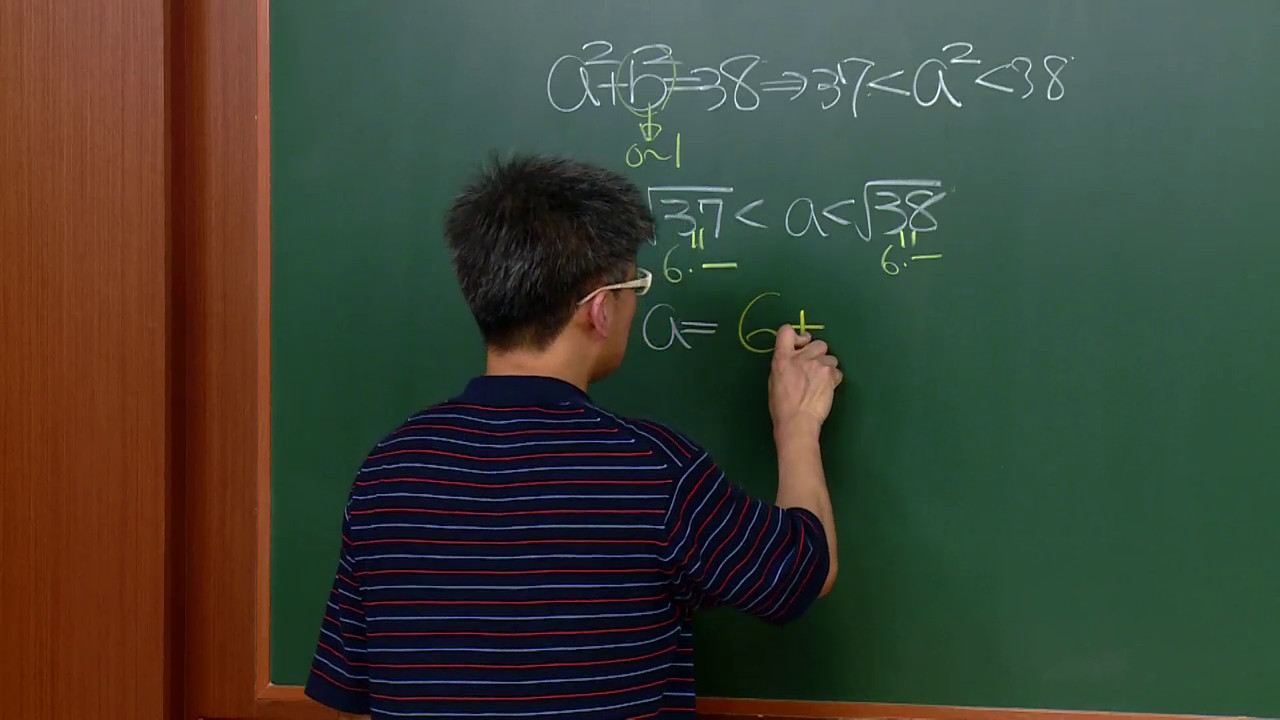 a²+b²=38⇒37<a²<38
0~1
√37< a<√38
6.— 6.—
a= 6+